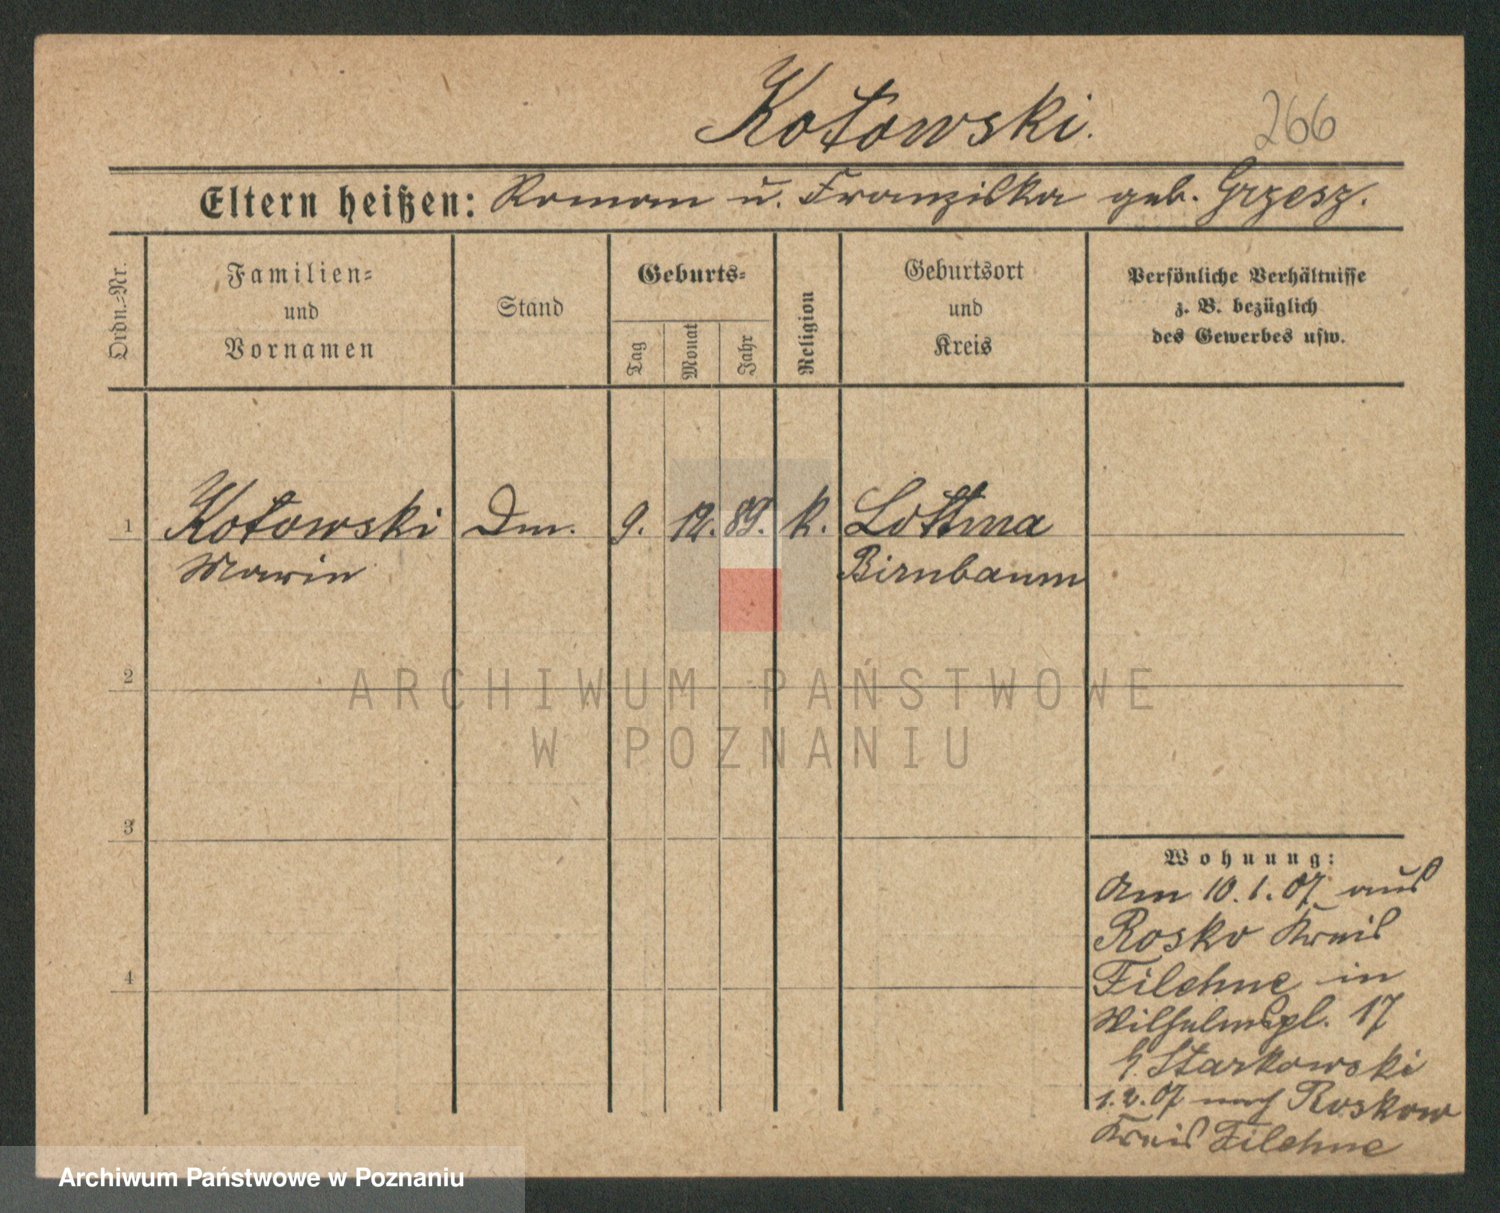 Kotowski.
266
Eltern heißen: Roman u. Franziska geb. Grzesz.
Ordn.=Nr.
Familien=
und
Vornamen
Stand
Geburts=
Tag
Monat
Jahr
Religion
Geburtsort
und
Kreis
Persönliche Verhältnisse
z. B. bezüglich
des Gewerbes usw.
1 Kotowski Dm. 9. 12. 89. k. Lottma
Marie Birnbaum
2
3
4
Wohnung:
Am 10.1.07 aus
Rosko Kreis
Filehne in
Wilhelmspl. 17
b. Starkowski
1.2.07 nach Roskow
Kreis Filehne
ARCHIWUM PAŃSTWOWE
W POZNANIU
Archiwum Państwowe w Poznaniu